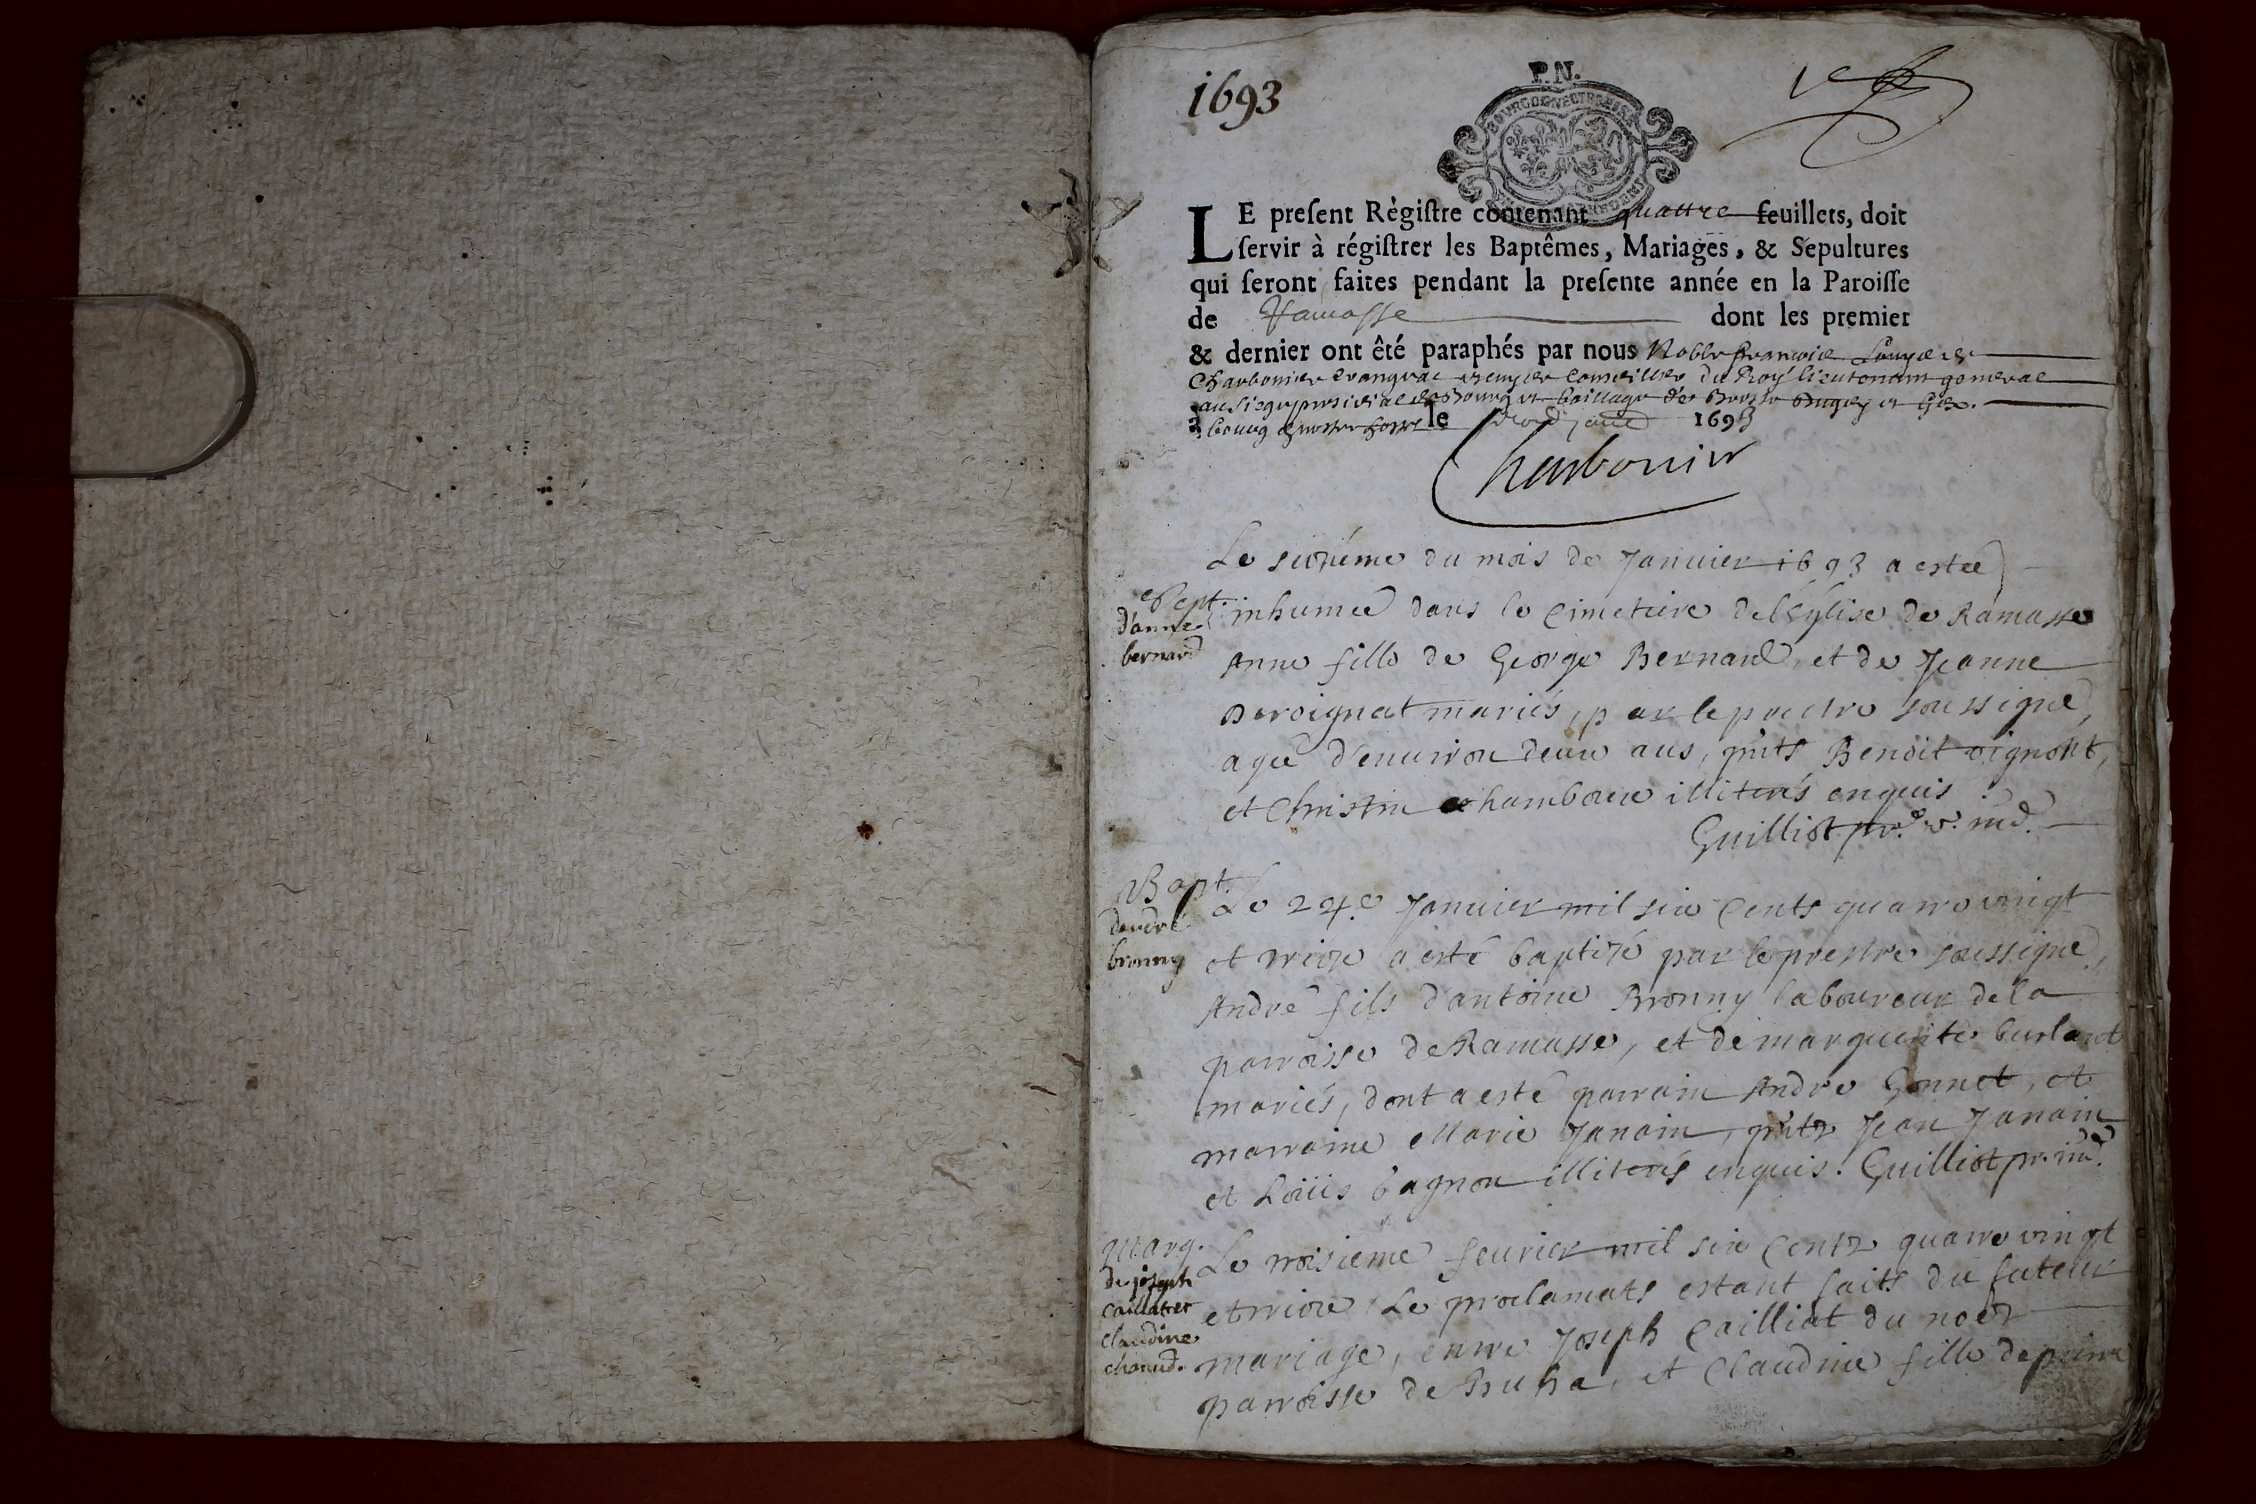 1693
P.N.
BOURGOGNE ET BRESSE
LE preſent Règiſtre contenant quattre feuillets, doit
ſervir à régiſtrer les Baptêmes, Mariages, & Sepultures
qui ſeront faites pendant la preſente année en la Paroiſſe
de Ramasse dont les premier
& dernier ont êté paraphés par nous Noble François
Charbonier escuyer Conseiller du Roy lieutenant general
au siege presidial de bourg et bailliage de Bresse Bugey et Gex.
à bourg le 1693
Charbonier
Le sixiéme du mois de Janvier 1693 a estée
Sept.
d'anne
bernard
inhumée dans le Cimetiere de l'Eglise de Ramasse
Anne fille de George Bernard, et de Jeanne
Beroignat mariés, par le prestre soussigné,
agée d'environ deux ans, pnts Benoit vignont,
et Christin chamboux illiterés enquis
Guilliot pre. v. ind.
Bapt.
d'andré
bronny
Le 24e. Janvier mil six Cents quatre vingt
et treize a esté baptizé par le prestre soussigné,
André fils d'antoine Bronny laboureur de la
parroisse de Ramasse, et de marguerite burlant
mariés, dont a esté parrain André Gonnet, et
marraine Marie Janain, pntz Jean Janain
et Loüis bagnon illiterés enquis. Guilliot pr. ind.
Marg.
de joseph
caillat et
claudine
chanud.
Le troisieme feurier mil six Centz quatre vingt
et treize, Le proclamats estant faits du futeur
mariage, entre Joseph Cailliat du noër
parroisse de Buha, et Claudine fille de pierre